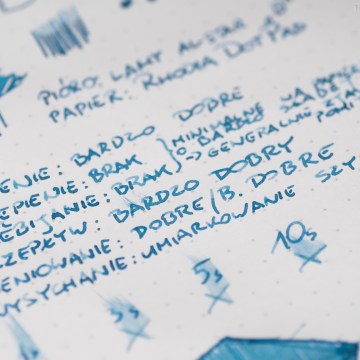 PIÓRO: LAMY AL STAR
PAPIER: RHODIA DOT PAD
ENIE: BARDZO DOBRE
ĘPIENIE: BRAK } MINIMALNE
EBIJANIE: BRAK → GENERALNIE
ZEPŁYW: BARDZO DOBRY
ENIOWANIE: DOBRE/B. DOBRE
WYSYCHANIE: UMIARKOWANIE SZY
5s 10s